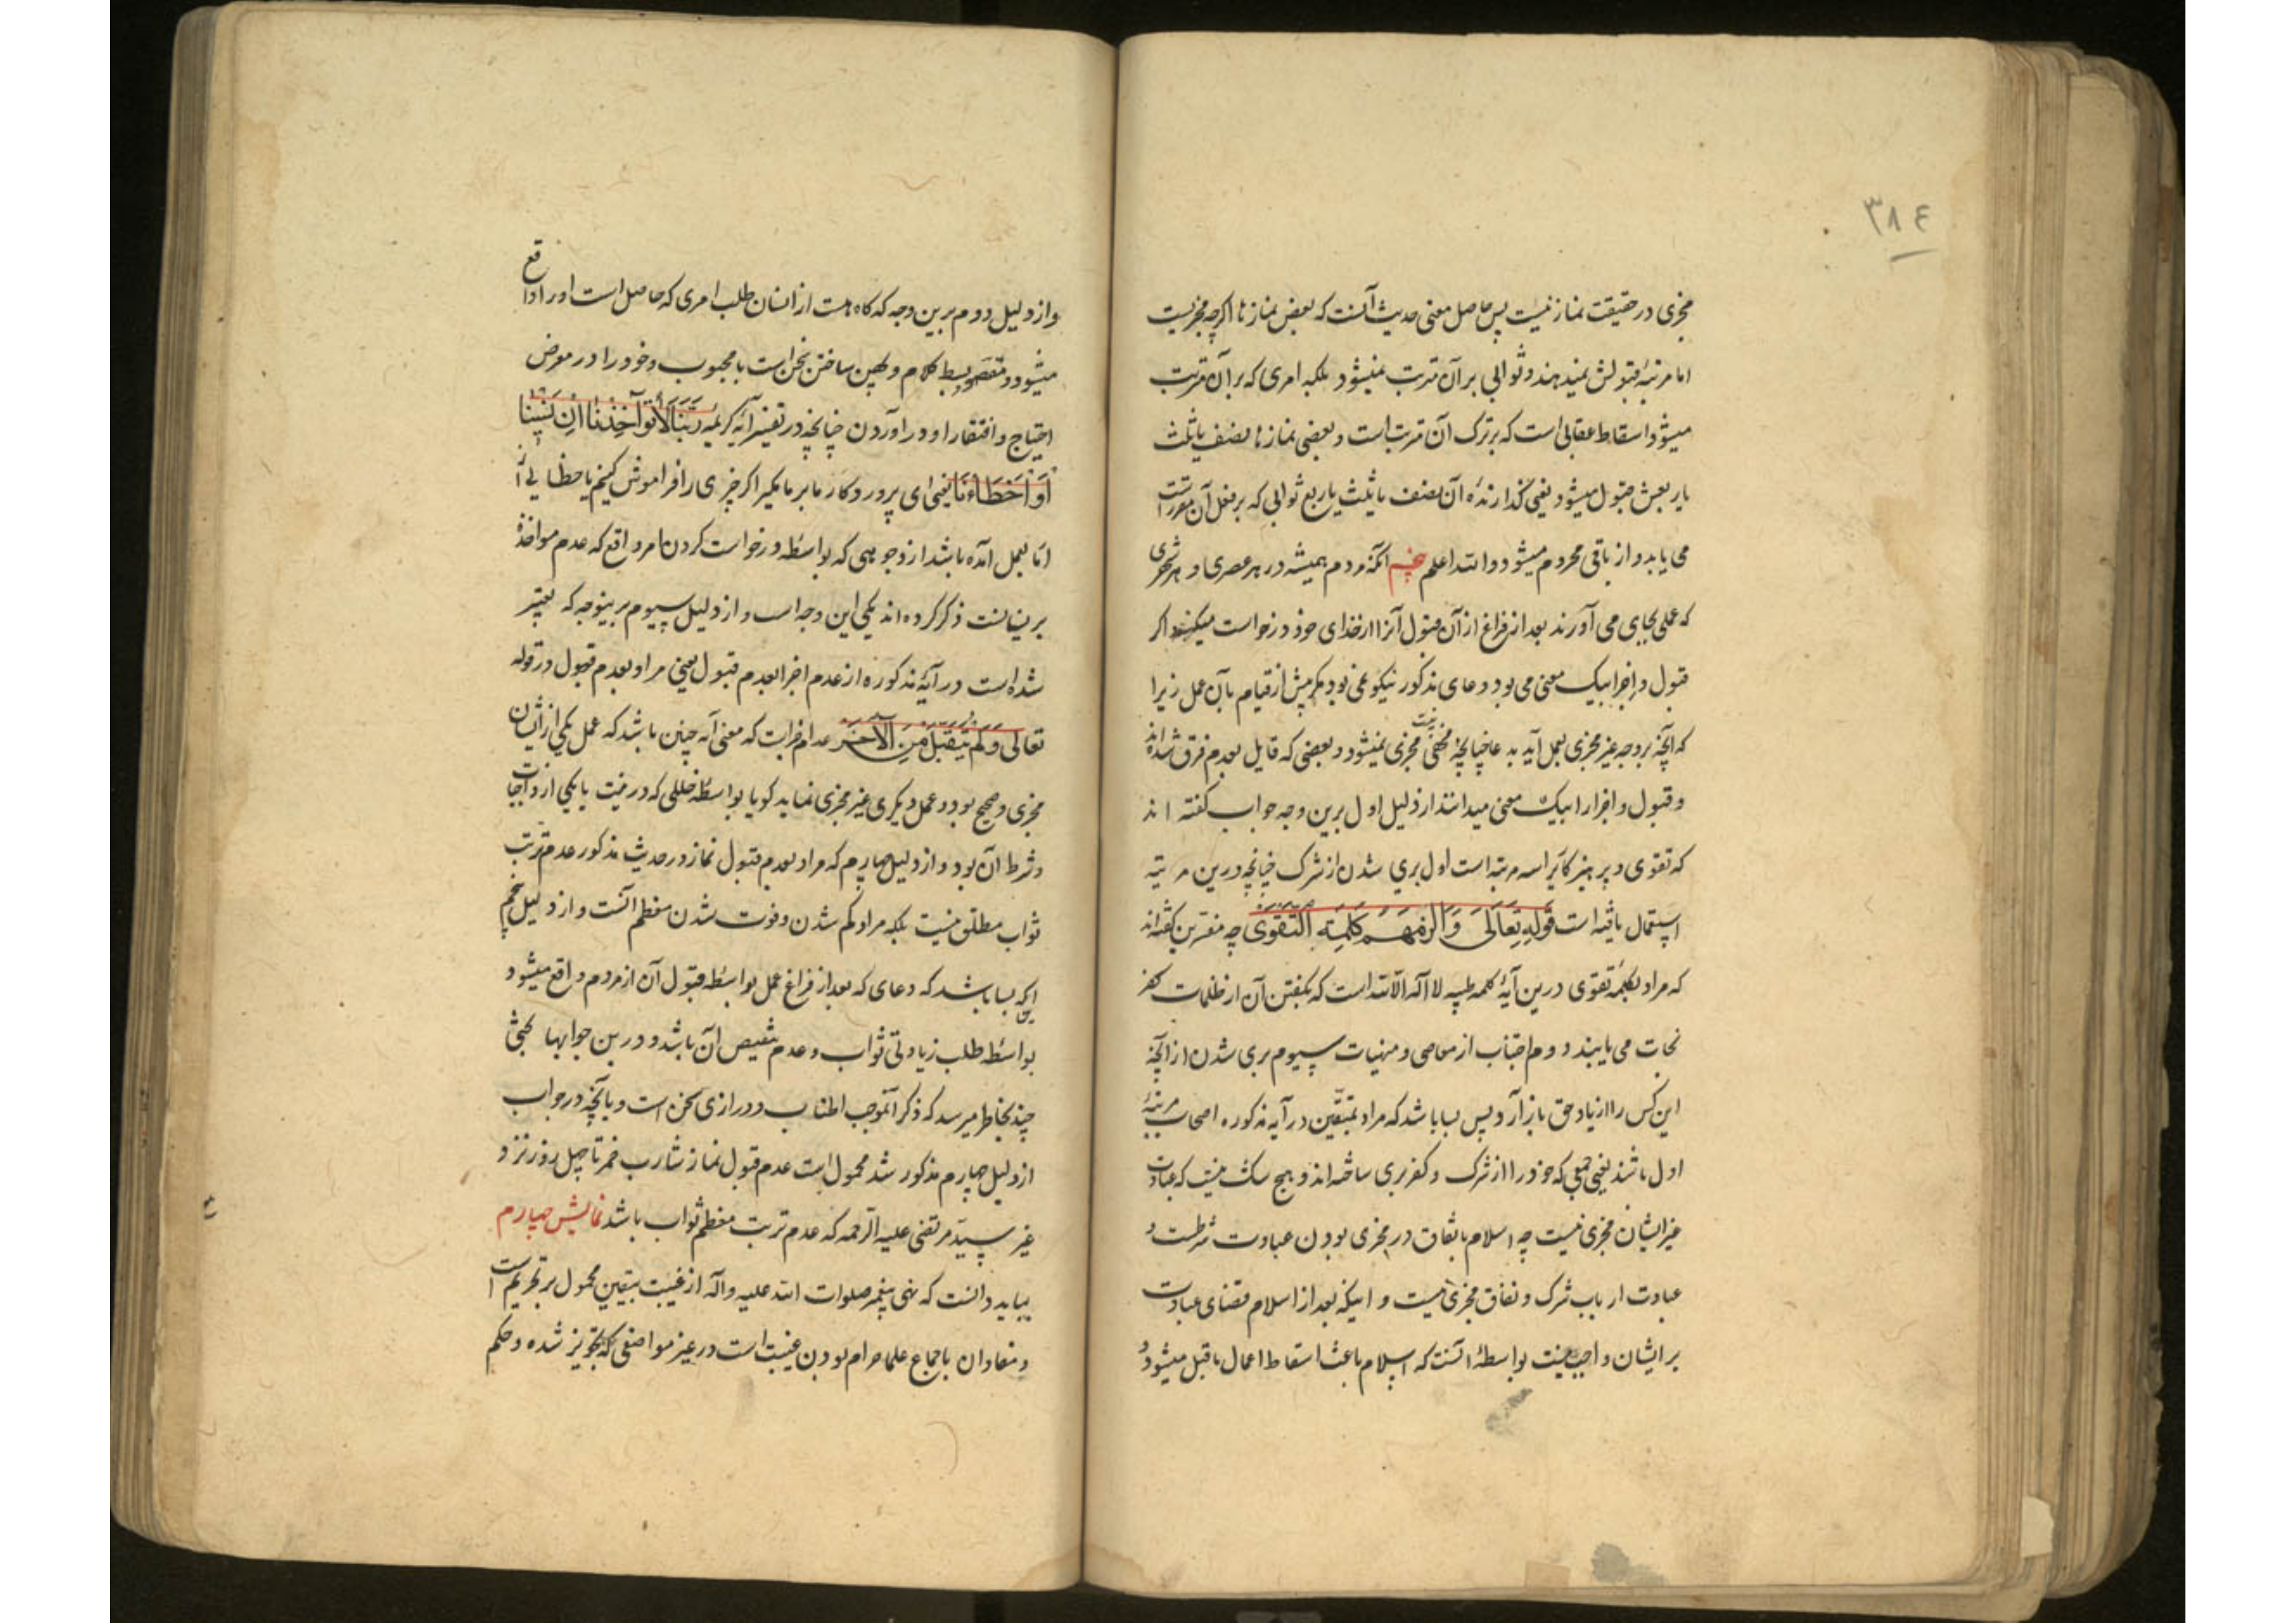 ٣٨٤
مجزی در حقیقت نماز نیست پس حاصل معنی حدیث آنست که بعض نمازها اگرچه مجزیست
اما مرتبهٔ قبولش نمیدهند و ثوابی بر آن مترتب نمیشود بلکه امری که بر آن مترتب
میشود اسقاط عقابی است که بر ترک آن مترتب است و بعضی نمازها نصف یا ثلث
یا ربعش قبول میشود یعنی گذارندهٔ آن نصف یا ثلث یا ربع ثوابی که بر فعل آن مقرر است
می یابد و از باقی محروم میشود والله اعلم پنجم آنکه مردم همیشه در هر عصری و هر شهری
که عملی بجای می آورند بعد از فراغ از آن قبول آنرا از خدای خود درخواست میکنند اگر
قبول و إجزا بیک معنی می بود دعای مذکور نیکو نمی بود مگر پیش از قیام بآن عمل زیرا
که آنچه بر وجه غیر مجزی بعمل آید بدعا چنانچه مجزی نمیشود و بعضی که قایل بعدم فرق شده اند
و قبول و اجزا را بیک معنی میدانند از دلیل اول برین وجه جواب گفته اند
که تقوی و پرهیزکاری را سه مرتبه است اول بری شدن از شرک چنانچه درین مرتبه
استعمال یافته است قوله تعالى وَأَلْزَمَهُمْ كَلِمَةَ التَّقْوَى چه مفسرین گفته اند
که مراد بکلمهٔ تقوی درین آیهٔ کلمه طیبه لا اله الا الله است که بگفتن آن از ظلمات کفر
نجات می یابند دوم اجتناب از معاصی و منهیات سیوم بری شدن از آنچه
این کس را از یاد حق باز آرد پس بسا باشد که مراد بمتقین در آیه مذکوره اصحاب مرتبهٔ
اول باشند یعنی جمعی که خود را از شرک و کفر بری ساخته اند و هیچ شک نیست که عبادت
غیر ایشان مجزی نیست چه اسلام باتفاق در مجزی بودن عبادت شرطست و
عبادت ارباب شرک و نفاق مجزی نیست و اینکه بعد از اسلام قضای عبادت
بر ایشان واجب نیست بواسطهٔ آنست که اسلام باعث اسقاط اعمال ماقبل میشود و
و از دلیل دوم برین وجه که گاه هست از انسان طلب امری که حاصل است او را واقع
میشود و مقصود بسط کلام و پهن ساختن سخن است با محبوب و خود را در معرض
احتیاج و افتقار او در آوردن چنانچه در تفسیر آیه کریمه رَبَّنَا لَا تُؤَاخِذْنَا إِنْ نَسِينَا
أَوْ أَخْطَأْنَا یعنی ای پروردگار ما بر ما مگیر اگر چیزی را فراموش کنیم یا خطایی از
ما بعمل آمده باشد از وجوهی که بواسطه درخواست کردن امر واقع که عدم مواخذهٔ
بر نسیانست ذکر کرده اند یکی این وجه است و از دلیل سیوم برینوجه که تعبیر
شده است در آیهٔ مذکوره از عدم اجزا بعدم قبول یعنی مراد بعدم قبول در قوله
تعالى وَلَمْ يُتَقَبَّلْ مِنَ الْآخَرِ عدم اجزاست که معنی آیه چنین باشد که عمل یکی از ایشان
مجزی و صحیح بود و عمل دیگری غیر مجزی نماید گویا بواسطهٔ خللی که در نیت یا یکی از واجبات
و شرط آن بود و از دلیل چهارم که مراد بعدم قبول نماز در حدیث مذکور عدم ترتب
ثواب مطلق نیست بلکه مراد کم شدن و فوت شدن معظم آنست و از دلیل پنجم
آنکه بسا باشد که دعای که بعد از فراغ عمل بواسطه قبول آن از مردم واقع میشود
بواسطه طلب زیادتی ثواب و عدم تنقیص آن باشد و درین جوابها بحثی
چند بخاطر میرسد که ذکر آن موجب اطناب و درازی سخن است و بآنچه در جواب
از دلیل چهارم مذکور شد محمول است عدم قبول نماز شارب خمر تا چهل روز نزد
غیر سید مرتضی علیه الرحمه که عدم ترتب معظم ثواب باشد نمایش چهارم
بباید دانست که نهی پیغمبر صلوات الله علیه وآله از غیبت بیقین محمول بر تحریم است
و مفاد آن باجماع علما حرام بودن غیبت است در غیر مواضعی که تجویز شده و حکم